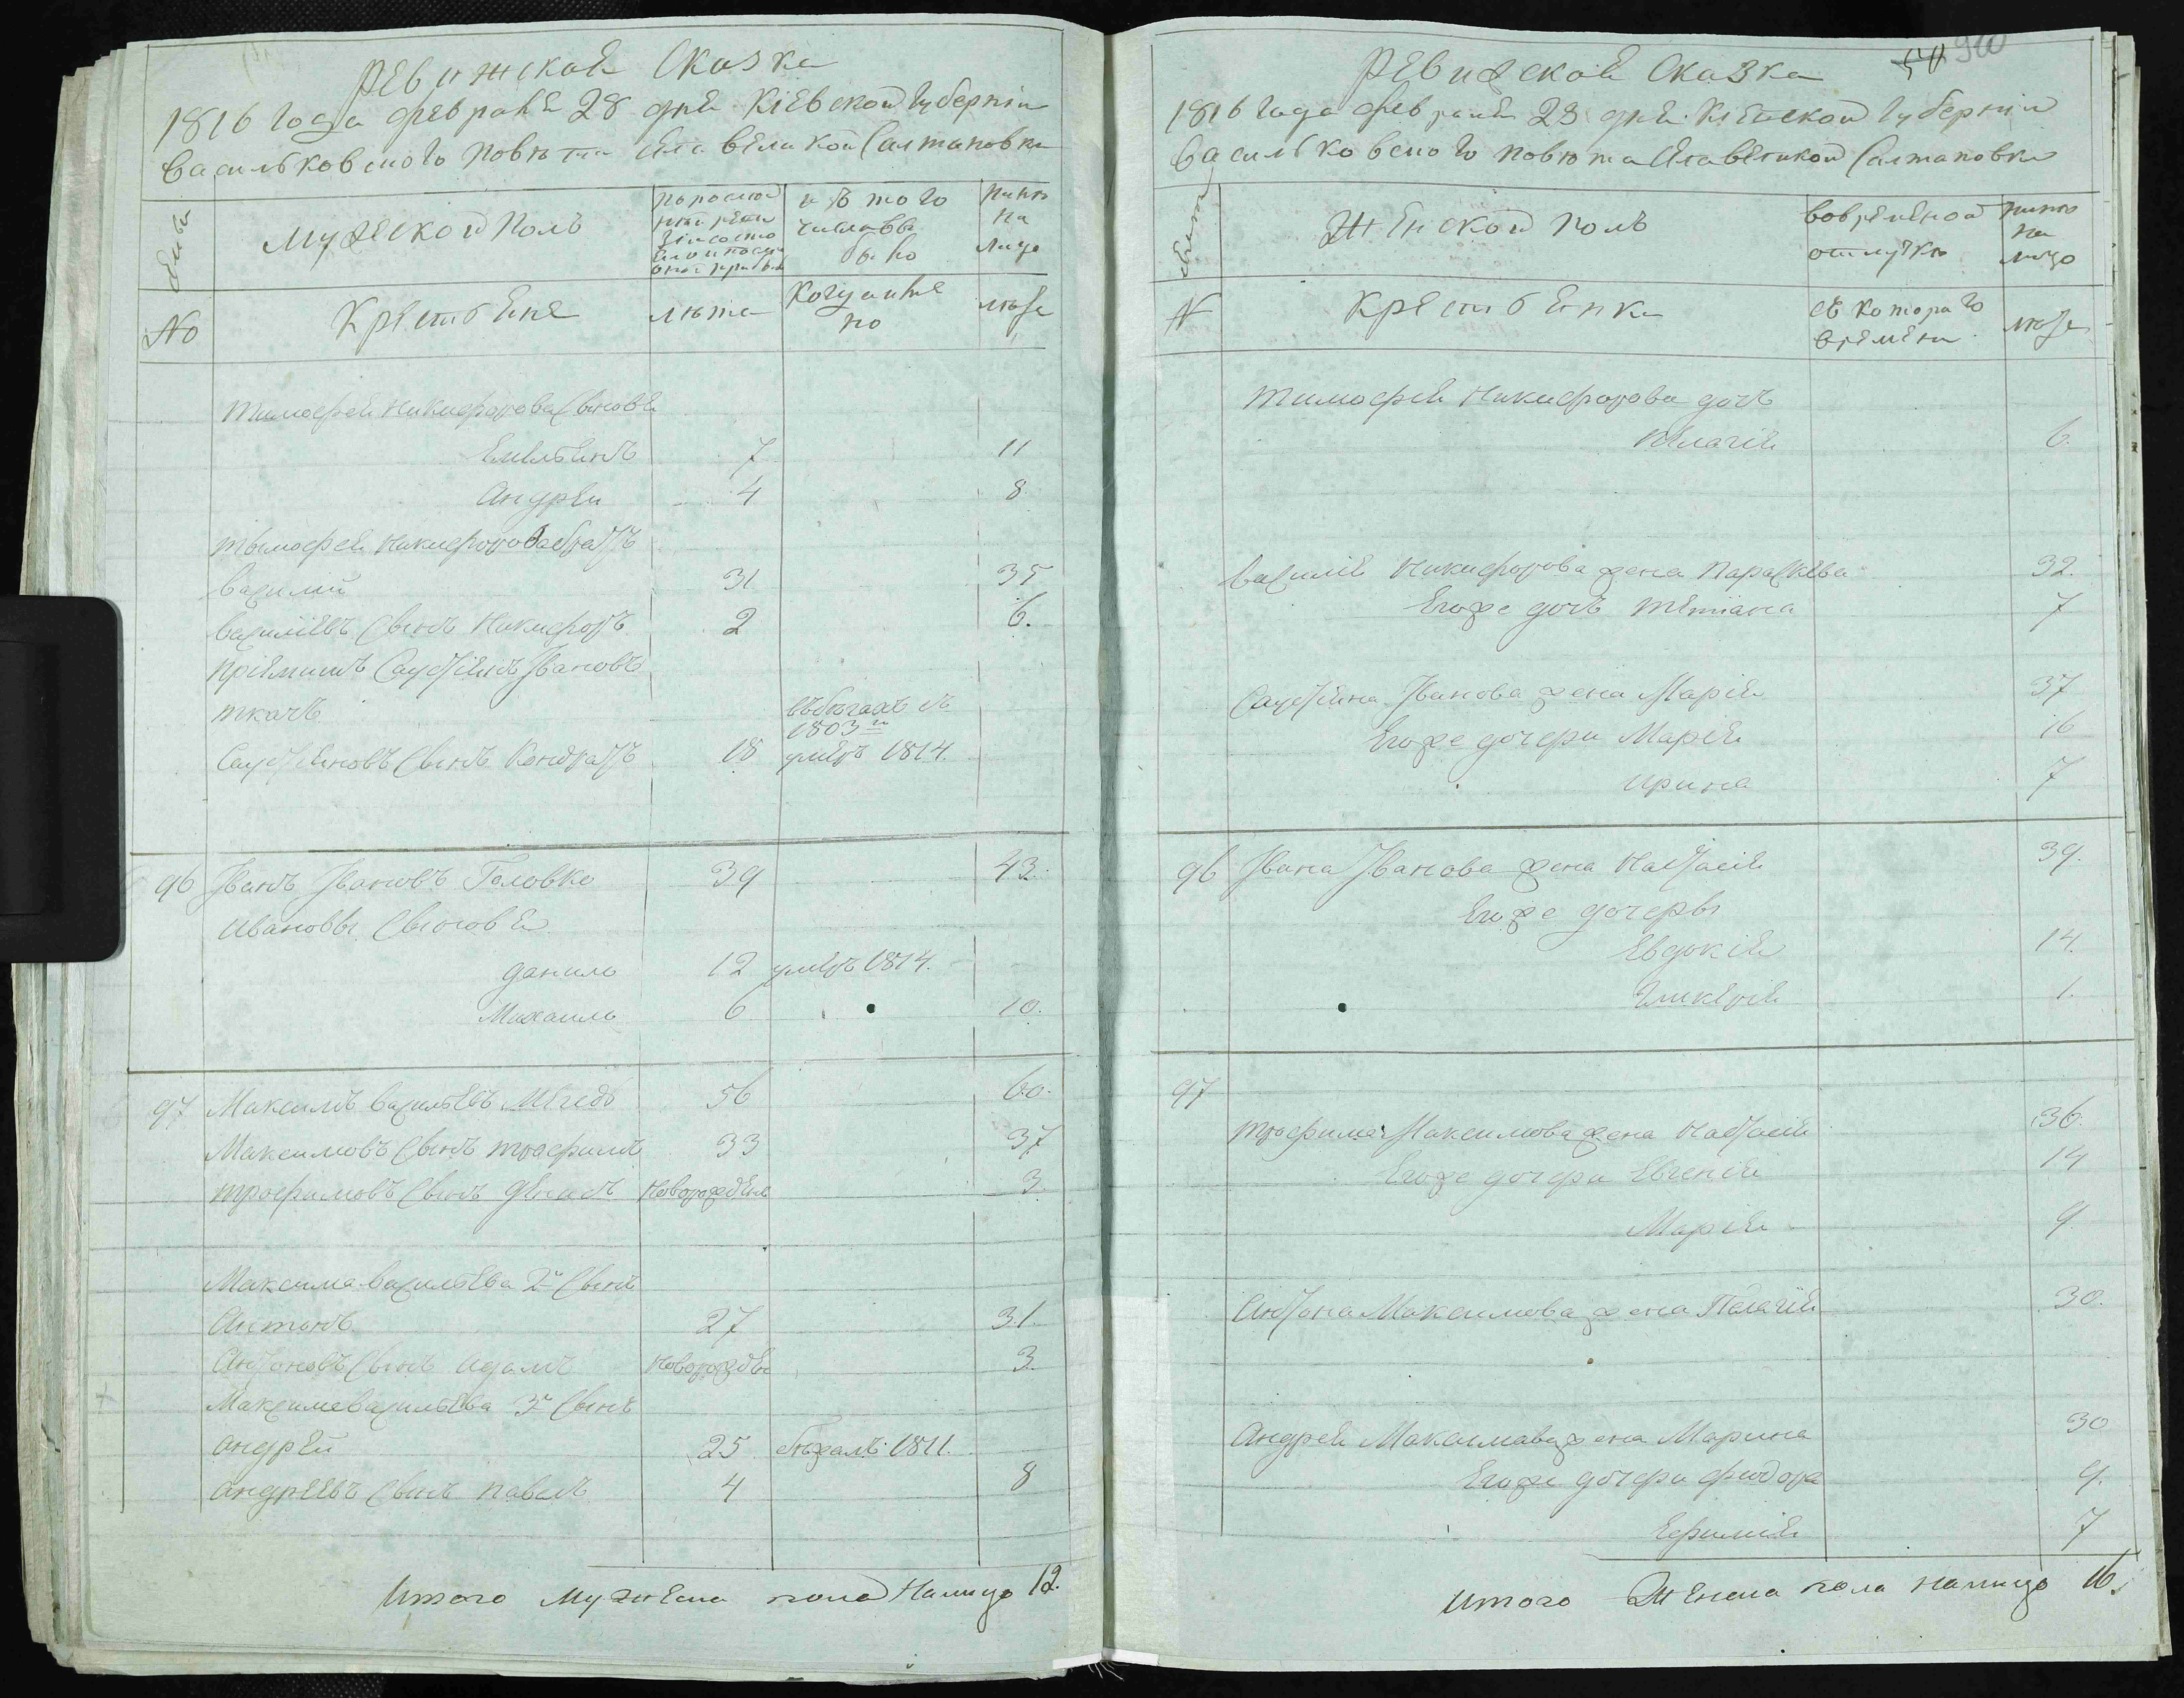 Ревижская Сказка
1816 года февраля 28 дня Кіевской Губерніи
васильковского повѣта Села великой Салтановки
Мужеской полъ
изъ того
числа вы
было
нынѣ
на
лицо
№
Крестьяне
лѣта
Когда имѣнно
лѣта
Тимофея Никифорова Сыновья
Емельянъ 7 11
Андрей 4 8
Тымофея Никифорова братъ
василий 31 35
василіевъ Сынъ Никифоръ 2 6.
пріемышъ Івановъ
ткачъ въ бѣгахъ съ
1803го
Сынъ Кондратъ 18 умеръ 1814.
96 Іванъ Івановъ Головко 39 43.
Ивановы Сыновья
данило 12 умеръ 1814.
Михаило 6 10.
97 Максимъ васильевъ 56 60.
Максимовъ Сынъ трофимъ 33 37
трофимовъ Сынъ Новорожденъ 3.
Максима васильева 2й Сынъ
Антонъ 27 31.
Антоновъ Сынъ Адамъ Новорожден 3.
Максима васильева 3й Сынъ
андрей 25 бѣжалъ 1811.
андреевъ Сынъ павелъ 4 8
Итого мужеска пола Налицо 12.
50 920
Ревижская Сказка
1816 года февраля 28 дня Кіевской Губерніи
васильковского повѣта Села великой Салтановки
Женской полъ
вовремѣнной
отлучкѣ
нынѣ
на
лицо
№
Крестьянки
съ котораго
времѣни
лѣта
Тимофея Никифорова дочь
пелагія 6.
василія Никифорова жена параскева 32.
Егоже дочь тетіана 7
Іванова жена Марія 37
Егоже дочери Марія 16
ирина 7
96 Івана Іванова жена Настасія 39.
Егоже дочеры
Евдокія 14.
Гликерія 1.
97
трофима Максимова жена Настасія 36.
Егоже дочери Евгенія 14
Марія 9
Антона Максимова жена Пелагія 30.
Андрея Максимава жена Марина 30
Егоже дочери феодора 9.
Ефимія 7
Итого Женска пола налицо 16.